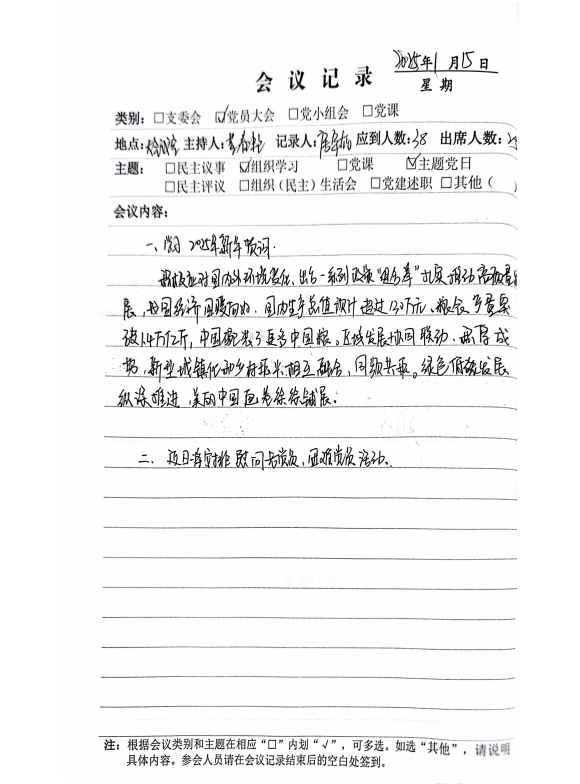 2025年1月15日
会议记录
星期
类别：□支委会 ☑党员大会 □党小组会 □党课
地点： 主持人： 记录人： 应到人数：38 出席人数：
主题：□民主议事 ☑组织学习 □党课 ☑主题党日
□民主评议 □组织（民主）生活会 □党建述职 □其他（ ）
会议内容：
一、学习2025年新年贺词.
积极应对国内外环境变化，出台一系列政策“组合拳”扎实推动高质量发
展，我国经济回暖向好，国内生产总值预计超过130万亿，粮食产量突
破1.4万亿斤，中国碗装了更多中国粮。区域发展协同联动、积厚成
势，新型城镇化和乡村振兴相互融合、同频共振。绿色低碳发展
纵深推进，美丽中国画卷徐徐铺展。
二、近日 安排慰问老党员、困难党员活动.
注：根据会议类别和主题在相应“□”内划“√”，可多选。如选“其他”，请说明
具体内容。参会人员请在会议记录结束后的空白处签到。